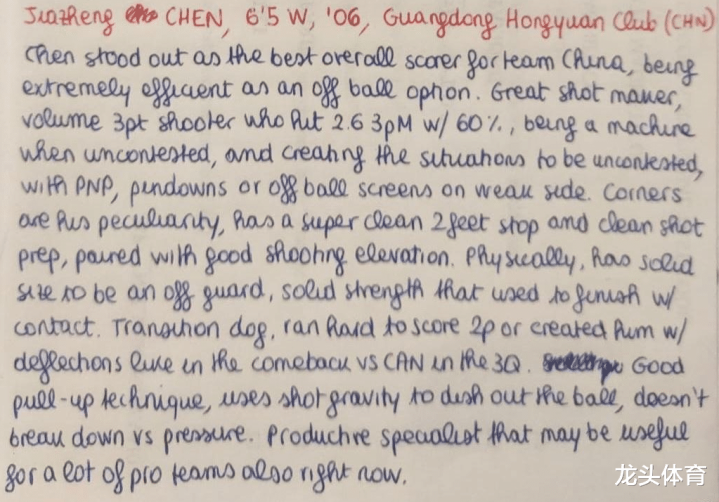 Jiazheng CHEN, 6'5 W, '06, Guangdong Hongyuan Club (CHN)
Chen stood out as the best overall scorer for team China, being
extremely efficient as an off ball option. Great shot maker,
volume 3pt shooter who hit 2.6 3pM w/ 60%, being a machine
when uncontested, and creating the situations to be uncontested,
with PNP, pindowns or off ball screens on weak side. Corners
are his peculiarity, has a super clean 2 feet stop and clean shot
prep, paired with good shooting elevation. Physically, has solid
size to be an off guard, solid strength that used to finish w/
contact. Transition dog, ran hard to score 2p or created him w/
deflections like in the comeback vs CAN in the 3Q. Good
pull-up technique, uses shot gravity to dish out the ball, doesn't
break down vs pressure. Productive specialist that may be useful
for a lot of pro teams also right now.
龙头体育